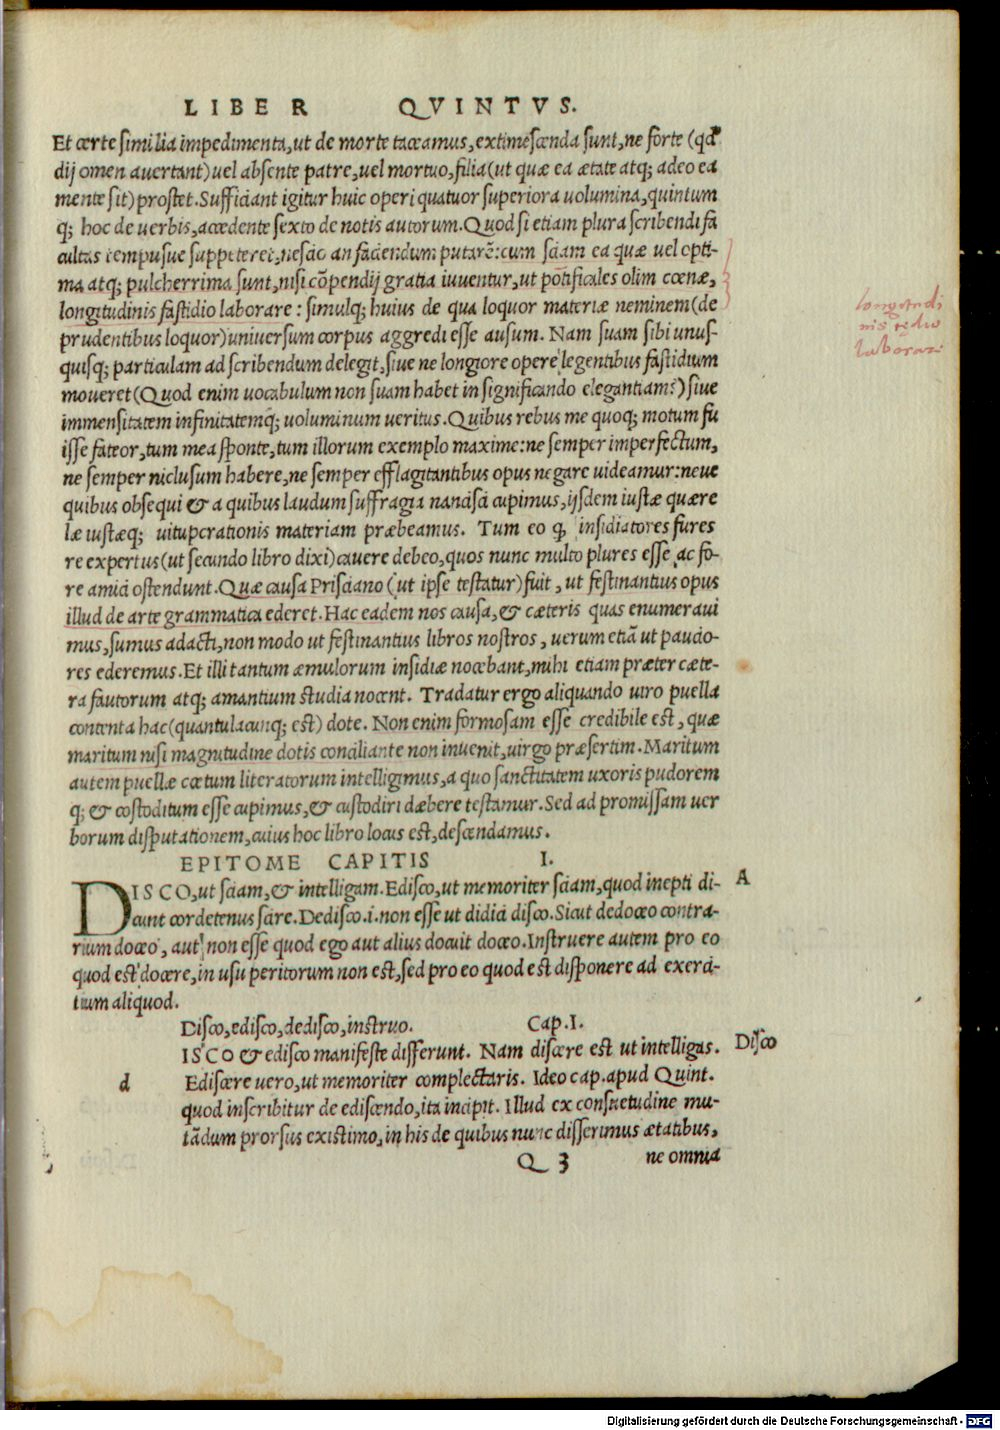 LIBER QVINTVS.
Et certe similia impedimenta, ut de morte taceamus, extimescenda sunt, ne forte (qđ
dij omen auertant) uel absente patre, uel mortuo, filia (ut quæ ea ætate atq; adeo ea
mente sit) prostet. Sufficiant igitur huic operi quatuor superiora uolumina, quintum
q; hoc de uerbis, accedente sexto de notis autorum. Quod si etiam plura scribendi fa
cultas tempusue suppeteret, nescio an faciendum putarē: cum sciam ea quæ uel opti-
ma atq; pulcherrima sunt, nisi cōpendij gratia iuuentur, ut pōtificales olim cœnæ,
longitudinis fastidio laborare: simulq; huius de qua loquor materiæ neminem (de
prudentibus loquor) uniuersum corpus aggredi esse ausum. Nam suam sibi unus-
quisq; particulam ad scribendum delegit, siue ne longiore opere legentibus fastidium
moueret (Quod enim uocabulum non suam habet in significando elegantiam?) siue
immensitatem infinitatemq; uoluminum ueritus. Quibus rebus me quoq; motum fu
isse fateor, tum mea sponte, tum illorum exemplo maxime: ne semper imperfectum,
ne semper niclusum habere, ne semper efflagitantibus opus negare uideamur: neue
quibus obsequi & a quibus laudum suffragia nancisci cupimus, ijsdem iustæ quære
læ iustæq; uituperationis materiam præbeamus. Tum eo ꝙ insidiatores fures
re expertus (ut secundo libro dixi) cauere debeo, quos nunc multo plures esse ac fo-
re amici ostendunt. Quæ causa Prisciano (ut ipse testatur) fuit, ut festinantius opus
illud de arte grammatica ederet. Hac eadem nos causa, & cæteris quas enumeraui
mus, sumus adacti, non modo ut festinantius libros nostros, uerum etiā ut paucio-
res ederemus. Et illi tantum æmulorum insidiæ nocebant, mihi etiam præter cæte-
ra fautorum atq; amantium studia nocent. Tradatur ergo aliquando uiro puella
contenta hac (quantulacunq; est) dote. Non enim formosam esse credibile est, quæ
maritum nisi magnitudine dotis conciliante non inuenit, uirgo præsertim. Maritum
autem puellæ cœtum literatorum intelligimus, a quo sanctitatem uxoris pudorem
q; & costoditum esse cupimus, & custodiri dæbere testamur. Sed ad promissam uer
borum disputationem, cuius hoc libro locus est, descendamus.
EPITOME CAPITIS I.
DISCO, ut sciam, & intelligam. Edisco, ut memoriter sciam, quod inepti di- A
cunt cordetenus scire. Dedisco .i. non esse ut didici disco. Sicut dedoceo contra-
rium doceo, aut non esse quod ego aut alius docuit doceo. Instruere autem pro eo
quod est docere, in usu peritorum non est, sed pro eo quod est disponere ad exerci-
tium aliquod.
Disco, edisco, dedisco, instruo. Cap. I.
ISCO & edisco manifeste differunt. Nam discere est ut intelligas. Disco
d Ediscere uero, ut memoriter complectaris. Ideo cap. apud Quint.
quod inscribitur de ediscendo, ita incipit. Illud ex consuetudine mu-
tādum prorsus existimo, in his de quibus nunc disserimus ætatibus,
Q 3 ne omnia
longitudi
nis tedio
laborari
Digitalisierung gefördert durch die Deutsche Forschungsgemeinschaft - DFG